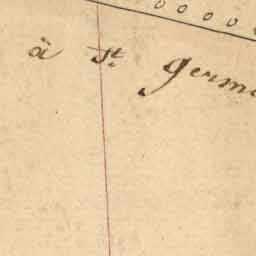 à St. germ